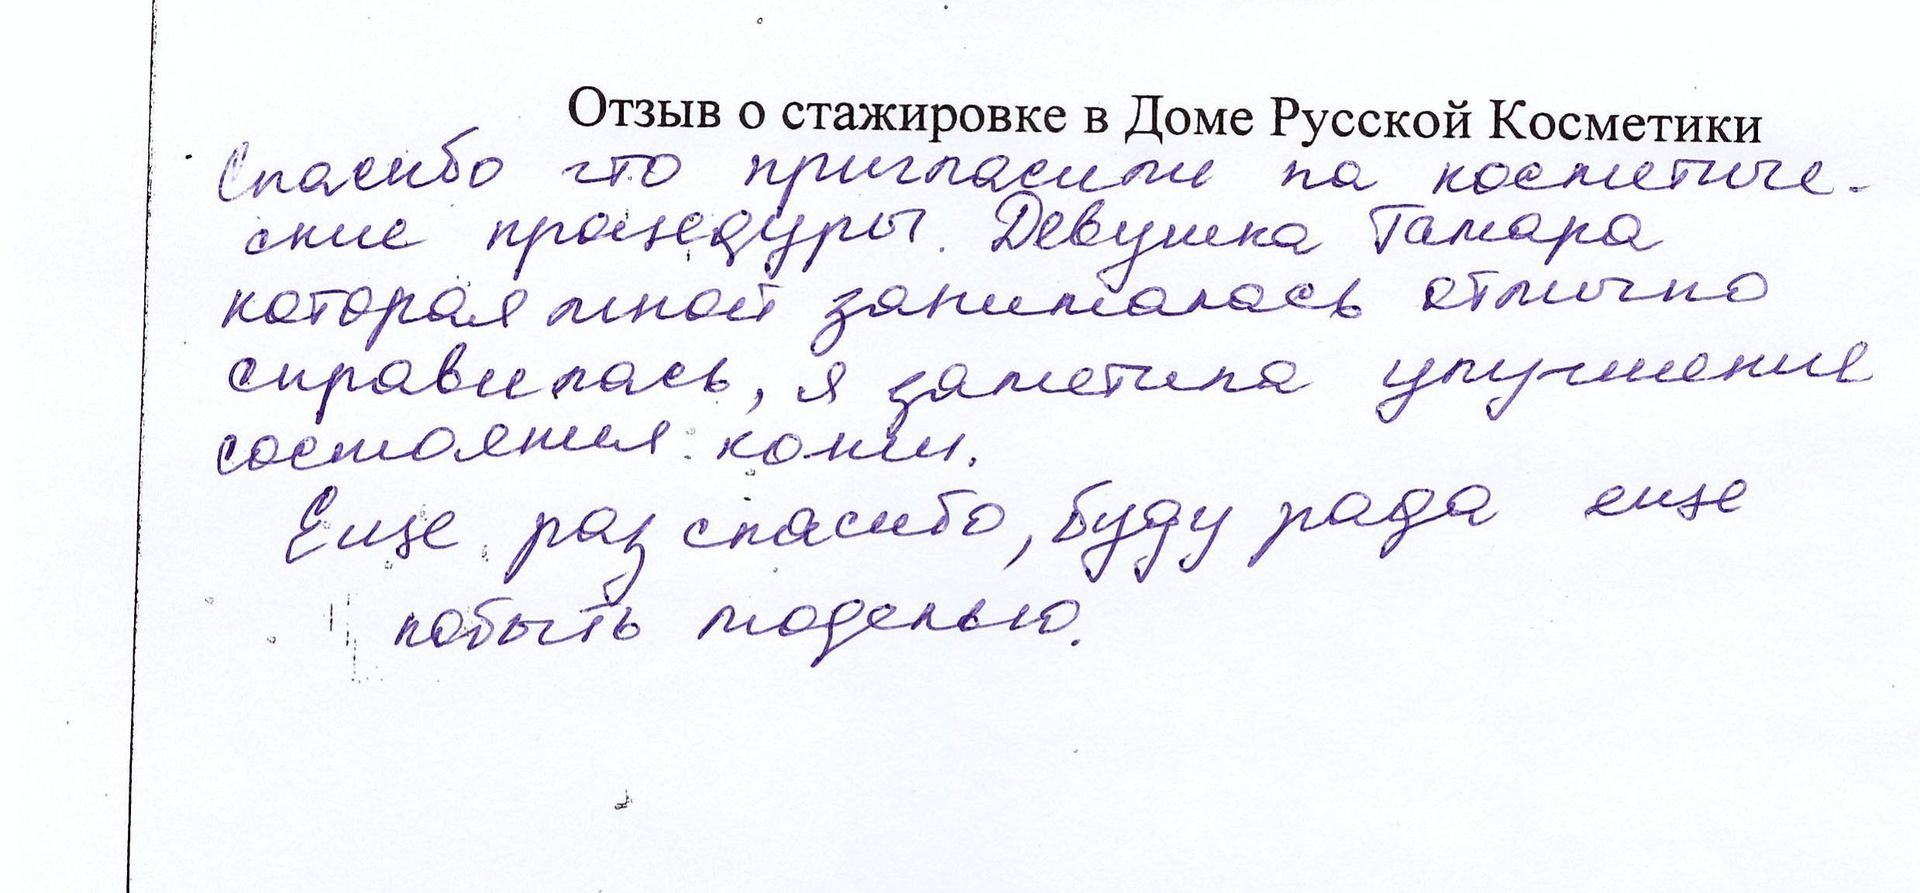 Отзыв о стажировке в Доме Русской Косметики
Спасибо что пригласили на косметиче-
ские процедуры. Девушка Тамара
которая мной занималась отлично
справилась, я заметила улучшение
состояния кожи.
Еще раз спасибо, буду рада еще
побыть моделью.